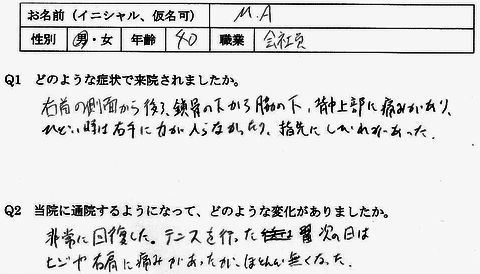 お名前（イニシャル、仮名可） M.A
性別 男・女 年齢 40 職業 会社員
Q1 どのような症状で来院されましたか。
右首の側面から後ろ、鎖骨の下から脇の下、背中上部に痛みがあり、
ひどい時は右手に力が入らなかったり、指先にしびれがあった。
Q2 当院に通院するようになって、どのような変化がありましたか。
非常に回復した。テニスを行った 翌次の日は
ヒジや右肩に痛みがあったが、ほとんど無くなった。